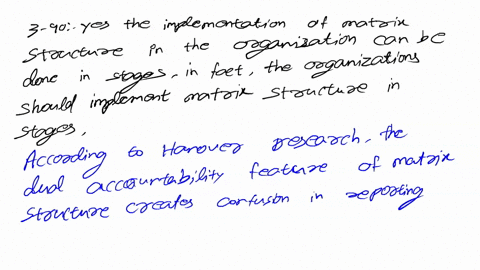 3-90:- yes the implementation of matrix
structure in the organization can be
done in stages, in fact, the organizations
should implement matrix structure in
stages.
According to Hanover research, the
dual accountability feature of matrix
structure creates confusion in reporting